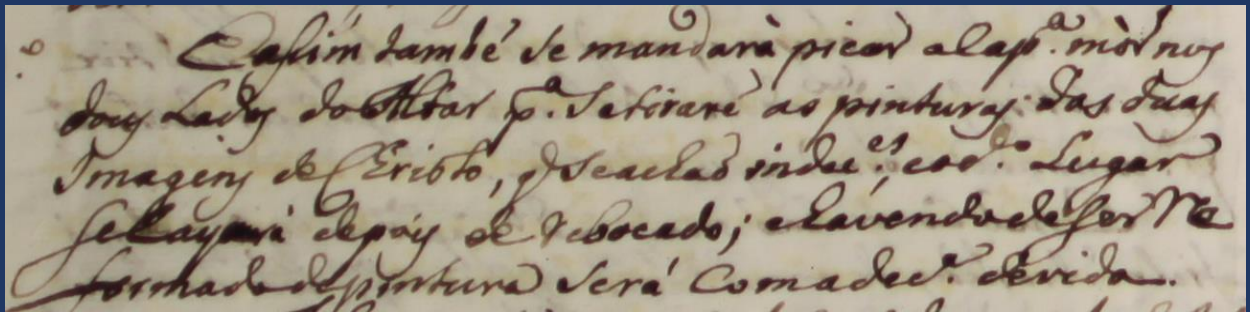 E asim també se mandarà picar a Cap.ª mòr nos
doys Lados do Altar p.ª se tirare as pinturas das duas
Imagens de Christo, q̃ se achaõ indec.es, e o d.º Lugar
se cayará depoys de rebocado; e havendo de ser Re
formada de pintura será Com a dec.ª devida.